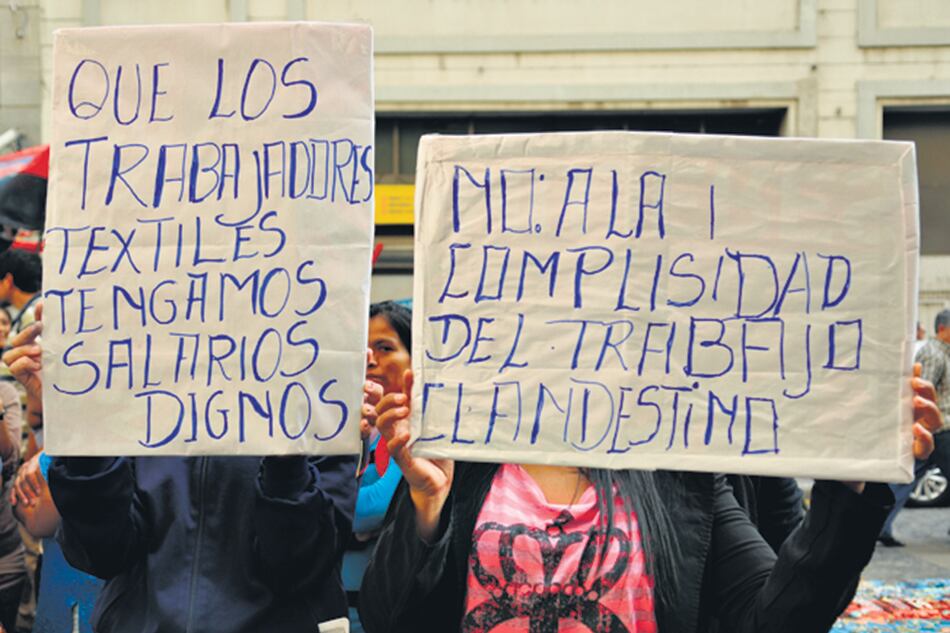 QUE LOS
TRABAJADORES
TEXTILES
TENGAMOS
SALARIOS
DIGNOS
NO: A LA
COMPLISIDAD
DEL TRABAJO
CLANDESTINO